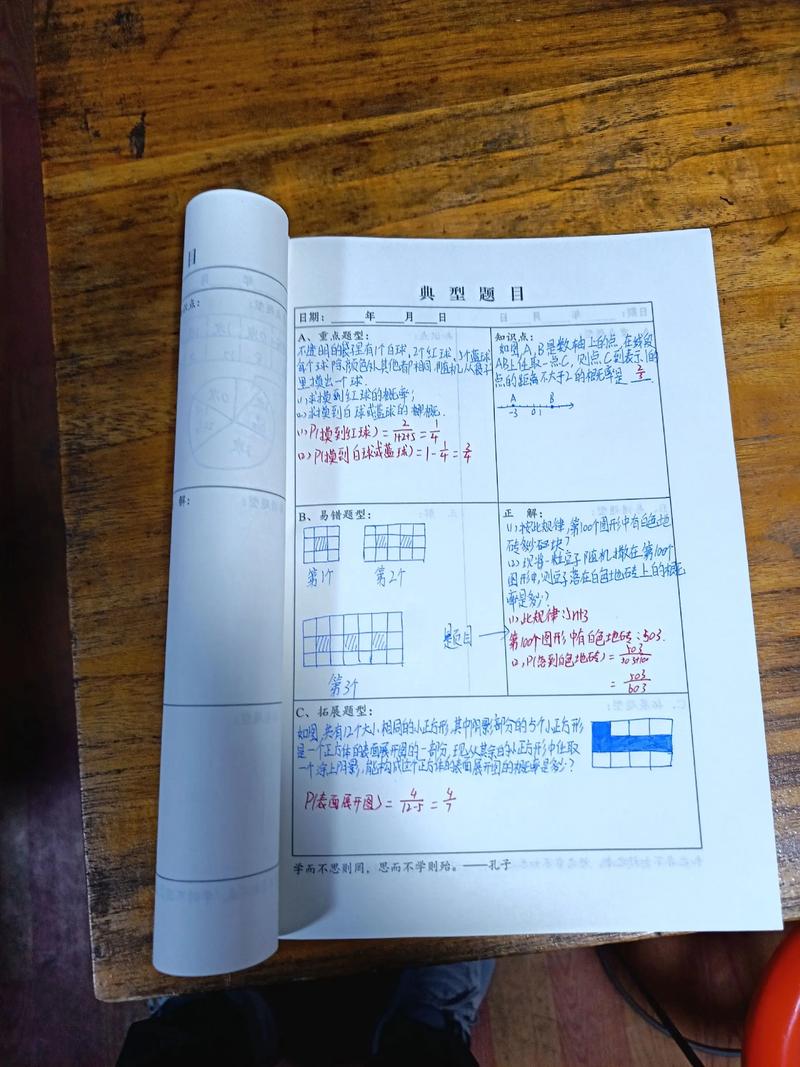 目
年 月
识点:
解:
典 型 题 目
日期: 年 月 日
A、重点题型:
不透明的袋里有1个白球,2个红球,5个蓝球
每个球除颜色外其他都相同,随机从袋子
里摸出一个球.
(1)求摸到红球的概率;
(2)求摸到白球或蓝球的概率.
(1)P(摸到红球)=2/(1+2+5)=1/4
(2)P(摸到白球或蓝球)=1-1/4=3/4
知识点:
如图,A,B是数轴上的点,在线段
AB上任取一点C,则点C到表示1的
点的距离不大于2的概率是 2/5
A B
-3 0 1
B、易错题型:
第1个 第2个
第3个
题目
正 解:
(1)按此规律,第100个图形中有白色地
砖多少块?
(2)现将一粒豆子随机撒在第100个
图形中,则豆子落在白色地砖上的概
率是多少?
(1)此规律:5n+3
第100个图形中有白色地砖:503.
(2)P(落到白色地砖)=503/(503+100)
=503/603
C、拓展题型:
如图,共有12个大小相同的小正方形,其中阴影部分的5个小正方形
是一个正方体的表面展开图的一部分,现从其余的小正方形中任取
一个涂上阴影,能构成这个正方体的表面展开图的概率是多少?
P(表面展开图)=4/(12-5)=4/7
学而不思则罔,思而不学则殆。——孔子